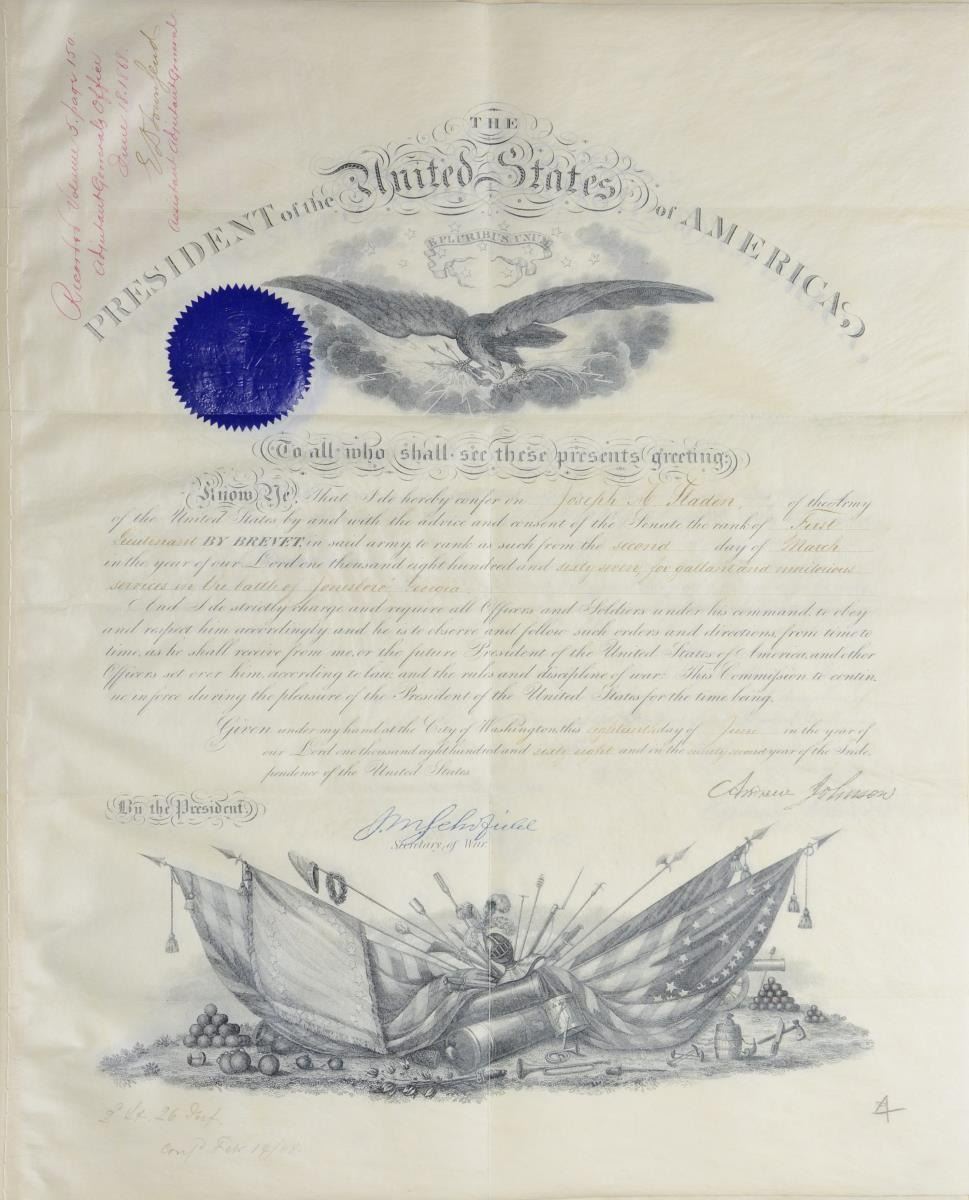 Recorded Volume 5. page 150.
Adjutant Generals Office
June 18. 1868.
E D Townsend
Assistant Adjutant General
THE
PRESIDENT of the United States of AMERICA,
E PLURIBUS UNUM
To all who shall see these presents greeting:
Know Ye, That I do hereby confer on Joseph A Sladen, of the Army
of the United States by and with the advice and consent of the Senate the rank of First
Lieutenant BY BREVET, in said army, to rank as such from the second day of March
in the year of our Lord one thousand eight hundred and sixty seven, for gallant and meritorious
services in the battle of Jonesboro' Georgia.
And I do strictly charge and require all Officers and Soldiers under his command, to obey
and respect him accordingly, and he is to observe and follow such orders and directions, from time to
time, as he shall receive from me, or the future President of the United States of America, and other
Officers set over him, according to law, and the rules and discipline of war: This Commission to contin-
ue in force during the pleasure of the President of the United States for the time being.
Given under my hand at the City of Washington, this eighteenth day of June in the year of
our Lord one thousand eight hundred and sixty eight and in the ninety second year of the Inde-
pendence of the United States
Andrew Johnson
By the President.
J. M. Schofield
Secretary, of War.
2. Lt. 26 Inf.
Conf'd Feb 14/68.